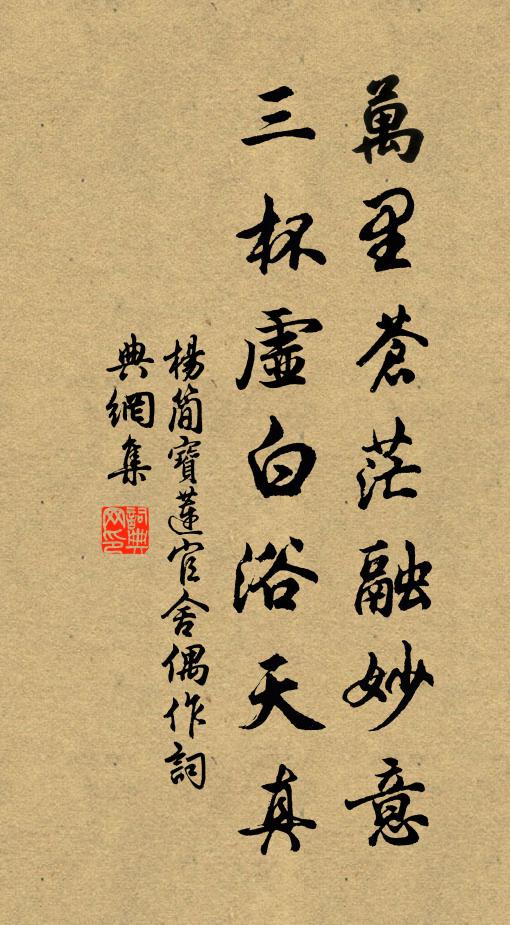 萬里蒼茫融妙意
三杯虛白浴天真
楊簡寶蓮官舍偶作詞
典網集
詞典網印